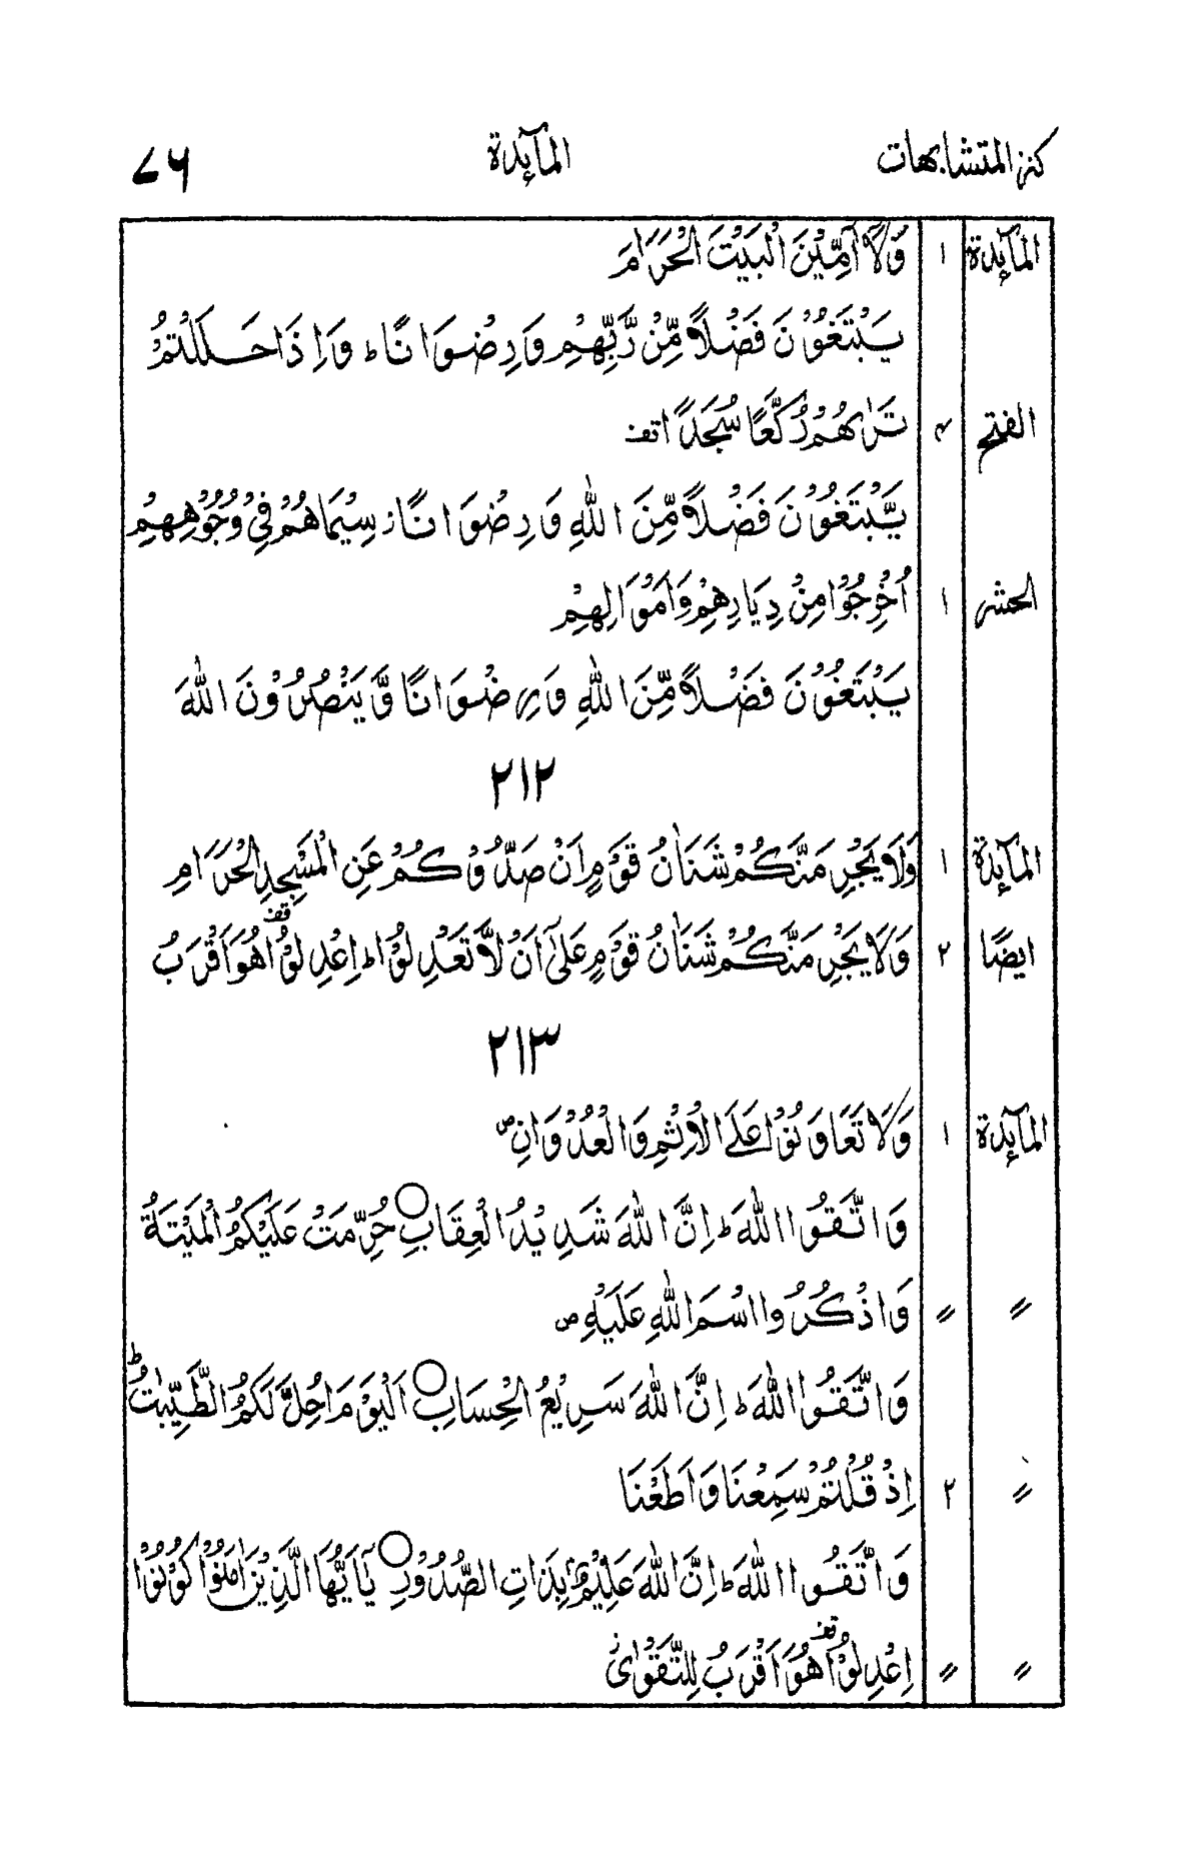 كنز المتشابهات المآئدة ٧٦
المآئدة ١ وَلَآ آمِّيْنَ الْبَيْتَ الْحَرَامَ
يَبْتَغُوْنَ فَضْلًا مِّنْ رَّبِّهِمْ وَرِضْوَانًا ؕ وَاِذَا حَلَلْتُمْ
الفتح ٤ تَرٰىهُمْ رُكَّعًا سُجَّدًا تف
يَّبْتَغُوْنَ فَضْلًا مِّنَ اللهِ وَرِضْوَانًا ز سِيْمَاهُمْ فِيْ وُجُوْهِهِمْ
الحشر ١ اُخْرِجُوْا مِنْ دِيَارِهِمْ وَاَمْوَالِهِمْ
يَبْتَغُوْنَ فَضْلًا مِّنَ اللهِ وَرِضْوَانًا وَّيَنْصُرُوْنَ اللهَ
٢١٢
المآئدة ١ وَلَا يَجْرِمَنَّكُمْ شَنَاٰنُ قَوْمٍ اَنْ صَدُّوْكُمْ عَنِ الْمَسْجِدِ الْحَرَامِ
ايضًا ٢ وَلَا يَجْرِمَنَّكُمْ شَنَاٰنُ قَوْمٍ عَلٰٓى اَنْ لَّا تَعْدِلُوْا ؕ اِعْدِلُوْا قف هُوَ اَقْرَبُ
٢١٣
المآئدة ١ وَلَا تَعَاوَنُوْا عَلَى الْاِثْمِ وَالْعُدْوَانِ ص
وَاتَّقُوا اللهَ ؕ اِنَّ اللهَ شَدِيْدُ الْعِقَابِ ○ حُرِّمَتْ عَلَيْكُمُ الْمَيْتَةُ
〃 〃 وَاذْكُرُوا اسْمَ اللهِ عَلَيْهِ ص
وَاتَّقُوا اللهَ ؕ اِنَّ اللهَ سَرِيْعُ الْحِسَابِ ○ اَلْيَوْمَ اُحِلَّ لَكُمُ الطَّيِّبٰتُ ؕ
〃 ٢ اِذْ قُلْتُمْ سَمِعْنَا وَاَطَعْنَا
وَاتَّقُوا اللهَ ؕ اِنَّ اللهَ عَلِيْمٌۢ بِذَاتِ الصُّدُوْرِ ○ يٰٓاَيُّهَا الَّذِيْنَ اٰمَنُوْا كُوْنُوْا
〃 〃 اِعْدِلُوْا قف هُوَ اَقْرَبُ لِلتَّقْوٰى ز